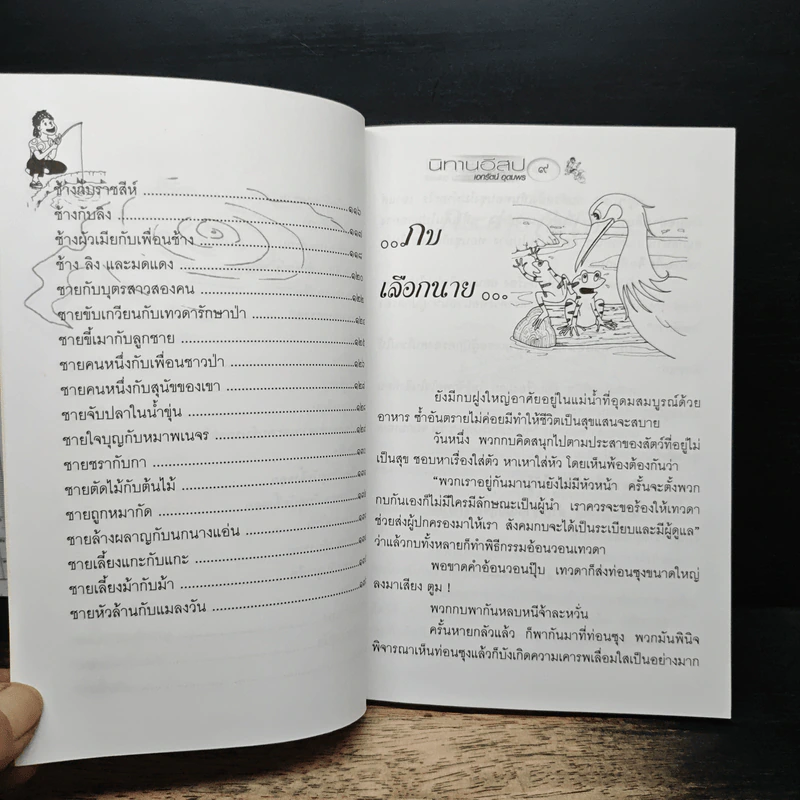 ช้างกับราชสีห์
ช้างกับลิง
ช้างผัวเมียกับเพื่อนช้าง
ช้าง ลิง และมดแดง
ชายกับบุตรสาวสองคน
ชายขับเกวียนกับเทวดารักษาป่า
ชายขี้เมากับลูกชาย
ชายคนหนึ่งกับเพื่อนชาวป่า
ชายคนหนึ่งกับสุนัขของเขา
ชายจับปลาในน้ำขุ่น
ชายใจบุญกับหมาพเนจร
ชายชรากับกา
ชายตัดไม้กับต้นไม้
ชายถูกหมากัด
ชายล้างผลาญกับนกนางแอ่น
ชายเลี้ยงแกะกับแกะ
ชายเลี้ยงม้ากับม้า
ชายหัวล้านกับแมลงวัน
นิทานอีสป ๙
เอกรัตน์ อุดมพร
..กบ
เลือกนาย ...
ยังมีกบฝูงใหญ่อาศัยอยู่ในแม่น้ำที่อุดมสมบูรณ์ด้วย
อาหาร ซ้ำอันตรายไม่ค่อยมีทำให้ชีวิตเป็นสุขแสนจะสบาย
วันหนึ่ง พวกกบคิดสนุกไปตามประสาของสัตว์ที่อยู่ไม่
เป็นสุข ชอบหาเรื่องใส่ตัว หาเหาใส่หัว โดยเห็นพ้องต้องกันว่า
“พวกเราอยู่กันมานานยังไม่มีหัวหน้า ครั้นจะตั้งพวก
กบกันเองก็ไม่มีใครมีลักษณะเป็นผู้นำ เราควรจะขอร้องให้เทวดา
ช่วยส่งผู้ปกครองมาให้เรา สังคมกบจะได้เป็นระเบียบและมีผู้ดูแล”
ว่าแล้วกบทั้งหลายก็ทำพิธีกรรมอ้อนวอนเทวดา
พอขาดคำอ้อนวอนปุ๊บ เทวดาก็ส่งท่อนซุงขนาดใหญ่
ลงมาเสียง ตูม !
พวกกบพากันหลบหนีจ้าละหวั่น
ครั้นหายกลัวแล้ว ก็พากันมาที่ท่อนซุง พวกมันพินิจ
พิจารณาเห็นท่อนซุงแล้วก็บังเกิดความเคารพเลื่อมใสเป็นอย่างมาก